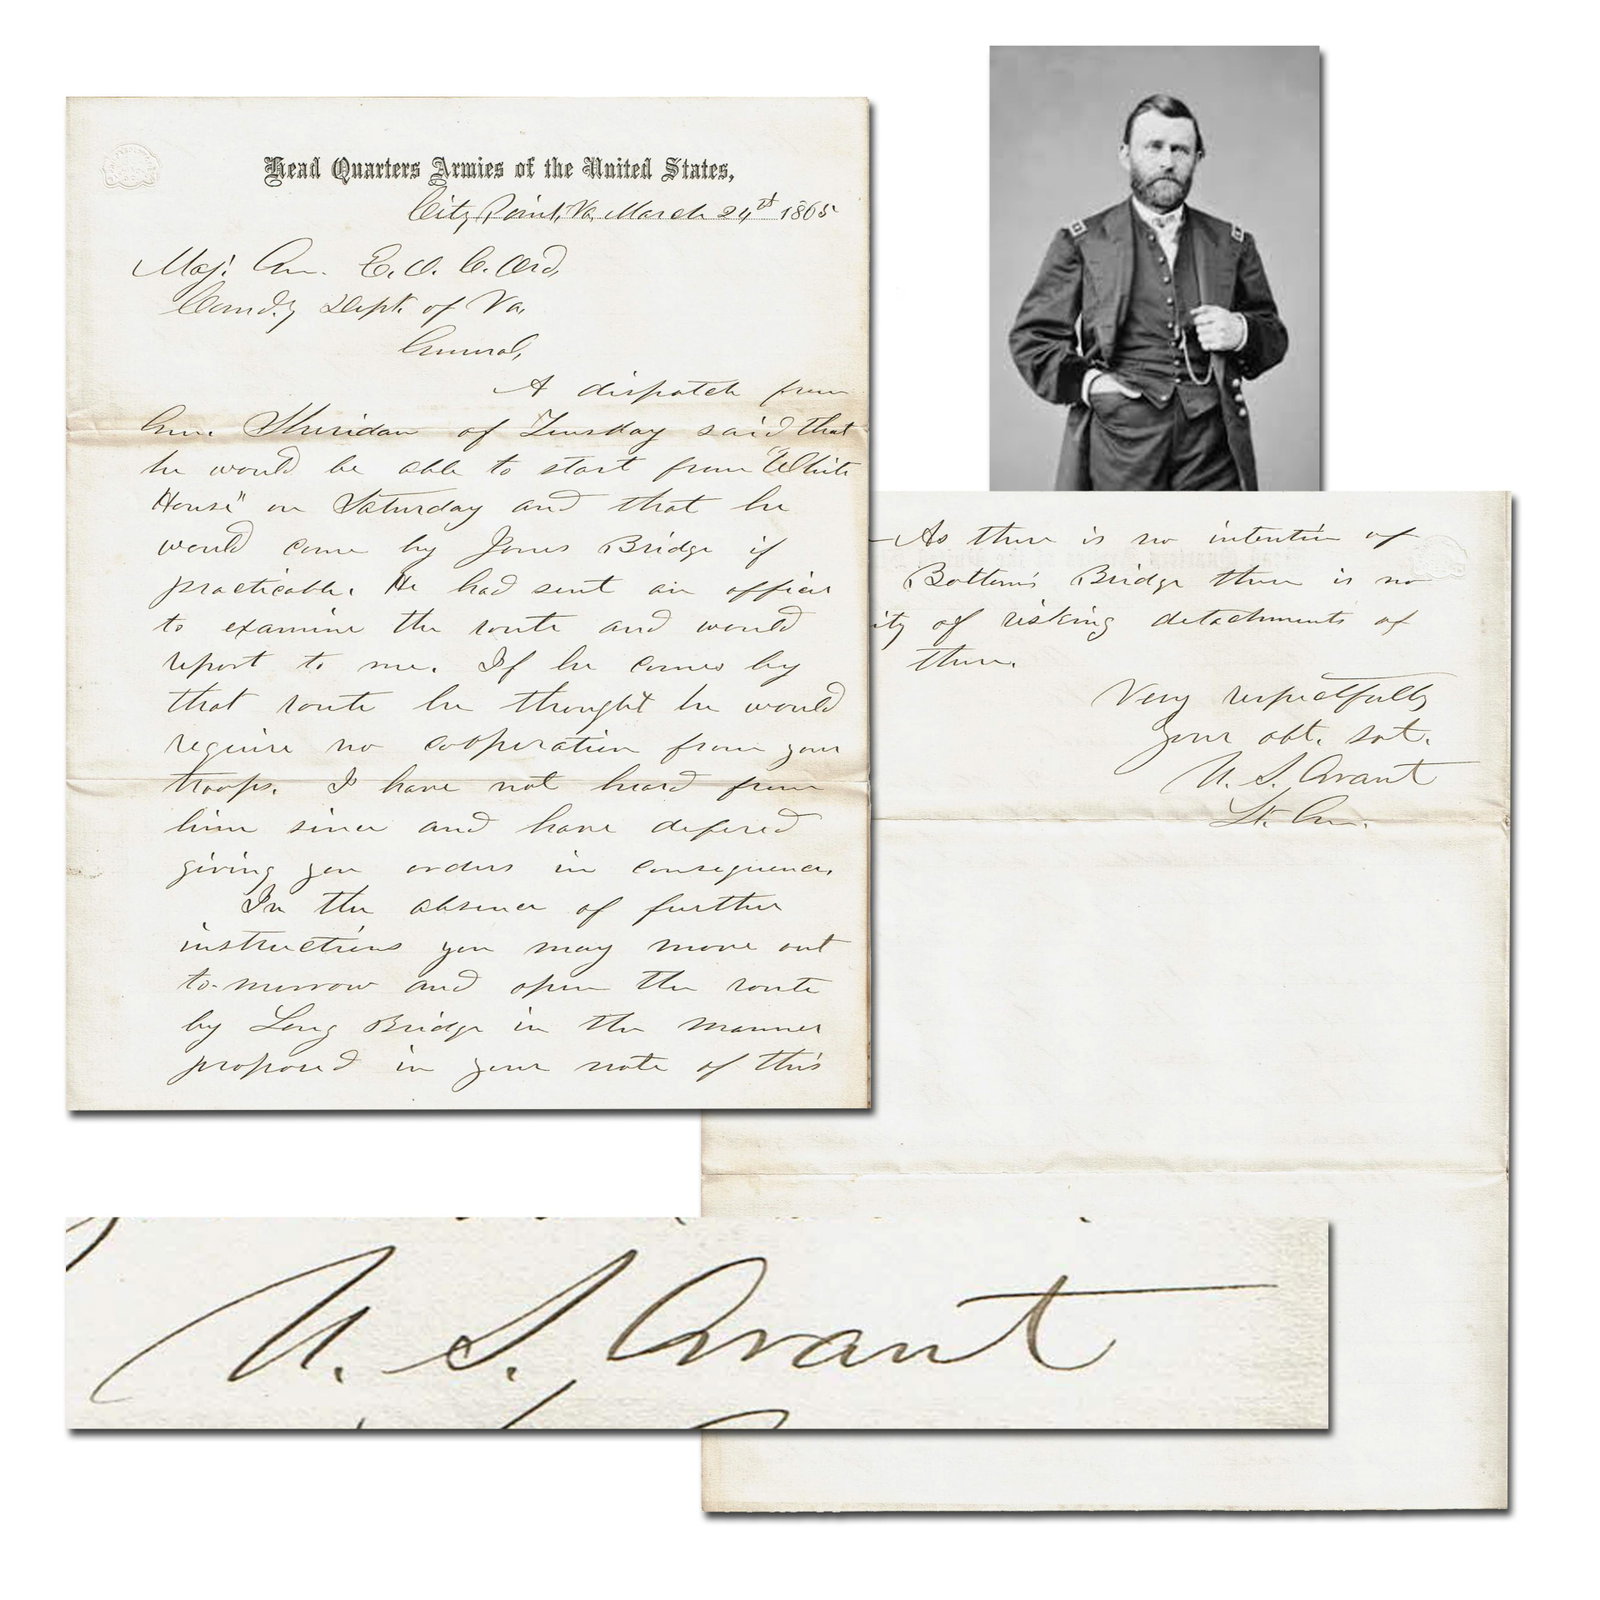 Head Quarters Armies of the United States,
City Point, Va, March 24th 1865
Maj. Gen. E. O. C. Ord,
Comd.g Dept. of Va,
General,
A dispatch from
Gen. Sheridan of Tuesday said that
he would be able to start from "White
House" on Saturday and that he
would come by Jones Bridge if
practicable. He had sent an officer
to examine the route and would
report to me. If he comes by
that route he thought he would
require no cooperation from your
troops. I have not heard from
him since and have defered
giving you orders in consequence.
In the absence of further
instructions you may move out
to-morrow and open the route
by Long Bridge in the manner
proposed in your note of this
As there is no intention of
Bottom's Bridge there is no
ity of risking detachments of
there.
Very respectfully
your obt. svt.
U. S. Grant
Lt. Gen.
U. S. Grant